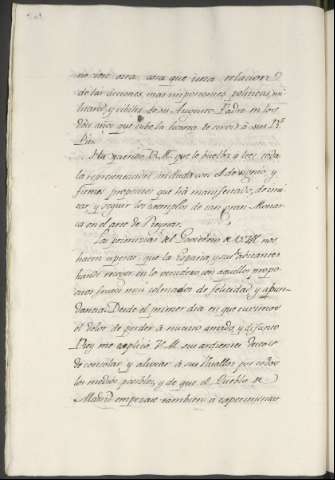 no con otra cosa que una relacion
de las acciones, mas importantes politicas, mi
litares, y civiles de su Augusto Padre en los
diez años que tube la honra de servir à sus Rs
Pies.
Ha querido V. M. que le buelba a leer toda
la representacion, incluida con el designio, y
firmes propositos que há manifestado, de imi
tar, y seguir los exemplos de un gran Monar
ca en el arte de Reynar.
Las primicias del Govierno de V. M. nos
hacen esperar, que la España, y sus
recojan en lo venidero con aquellos propo
colmados de felicidad, y abun
dancia. Desde el primer dia en que tuvimos
el dolor de perder à nuestro amado, y difunto
Rey me explicó V. M. sus ardientes deseos
de consolar y aliviar à sus Vasallos por todos
los medios posibles, y de que el Pueblo de
Madrid empezase tambien à experimentar